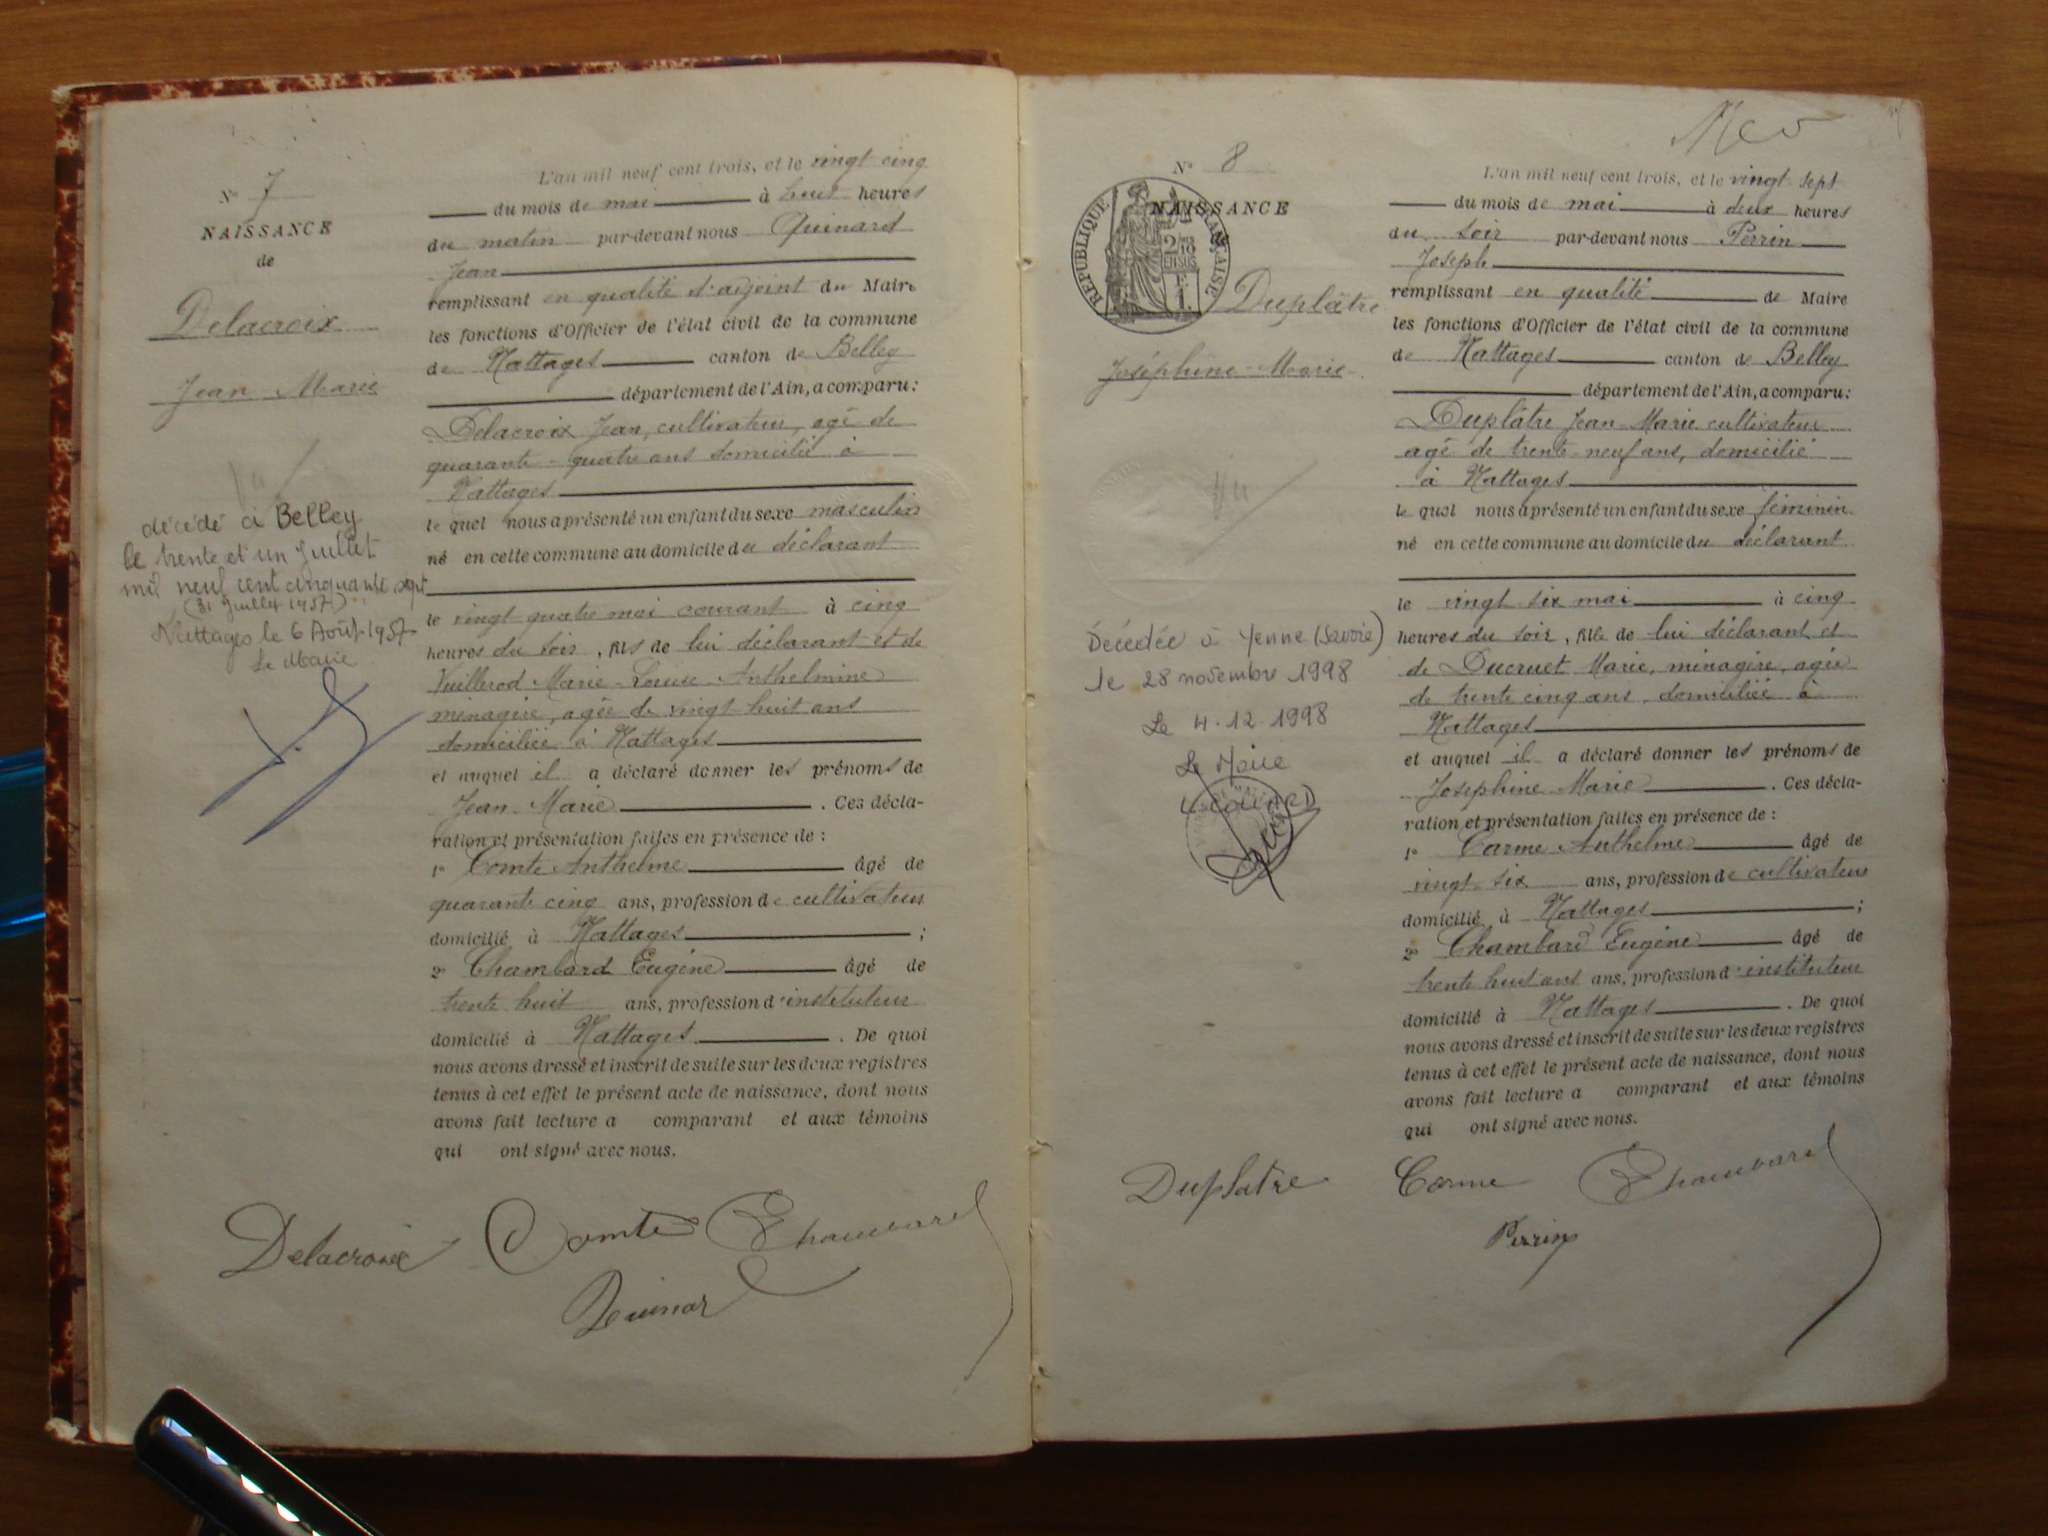 N° 7
NAISSANCE
de
Delacroix
Jean Marie
Vu
décédé à Belley
le trente et un Juillet
mil neuf cent cinquante sept
(31 Juillet 1957)
Nattages le 6 Août 1957
Le Maire
L'an mil neuf cent trois, et le vingt cinq
du mois de mai à huit heures
du matin par-devant nous Quinard
Jean
remplissant en qualité d'adjoint du Maire
les fonctions d'Officier de l'état civil de la commune
de Nattages canton de Belley
département de l'Ain, a comparu:
Delacroix Jean, cultivateur, agé de
quarante-quatre ans domicilié à
Nattages
le quel nous a présenté un enfant du sexe masculin
né en cette commune au domicile du déclarant
le vingt quatre mai courant à cinq
heures du soir, fils de lui déclarant et de
Vuillerod Marie-Louise Anthelmine
ménagère, agée de vingt huit ans
domiciliée à Nattages
et auquel il a déclaré donner les prénoms de
Jean-Marie. Ces décla-
ration et présentation faites en présence de :
1° Comte Anthelme âgé de
quarante cinq ans, profession de cultivateur
domicilié à Nattages ;
2° Chambard Eugène âgé de
trente huit ans, profession d'instituteur
domicilié à Nattages. De quoi
nous avons dressé et inscrit de suite sur les deux registres
tenus à cet effet le présent acte de naissance, dont nous
avons fait lecture a comparant et aux témoins
qui ont signé avec nous.
Delacroix Comte EChambard
Quinard
N° 8
NAISSANCE
RÉPUBLIQUE FRANÇAISE
Duplâtre
Joséphine-Marie
Vu
Décédée à Yenne (Savoie)
le 28 novembre 1998
Le 4.12.1998
Le Maire
L'an mil neuf cent trois, et le vingt sept
du mois de mai à deux heures
du soir par-devant nous Perrin
Joseph
remplissant en qualité de Maire
les fonctions d'Officier de l'état civil de la commune
de Nattages canton de Belley
département de l'Ain, a comparu:
Duplâtre Jean-Marie cultivateur
agé de trente-neuf ans, domicilié
à Nattages
le quel nous a présenté un enfant du sexe féminin
né en cette commune au domicile du déclarant
le vingt six mai à cinq
heures du soir, fille de lui déclarant et
de Ducruet Marie, ménagère, agée
de trente cinq ans, domiciliée à
Nattages
et auquel il a déclaré donner les prénoms de
Joséphine Marie. Ces décla-
ration et présentation faites en présence de :
1° Carme Anthelme âgé de
vingt six ans, profession de cultivateur
domicilié à Nattages ;
2° Chambard Eugène âgé de
trente huit ans ans, profession d'instituteur
domicilié à Nattages. De quoi
nous avons dressé et inscrit de suite sur les deux registres
tenus à cet effet le présent acte de naissance, dont nous
avons fait lecture a comparant et aux témoins
qui ont signé avec nous.
Duplatre Carme EChambard
Perrin